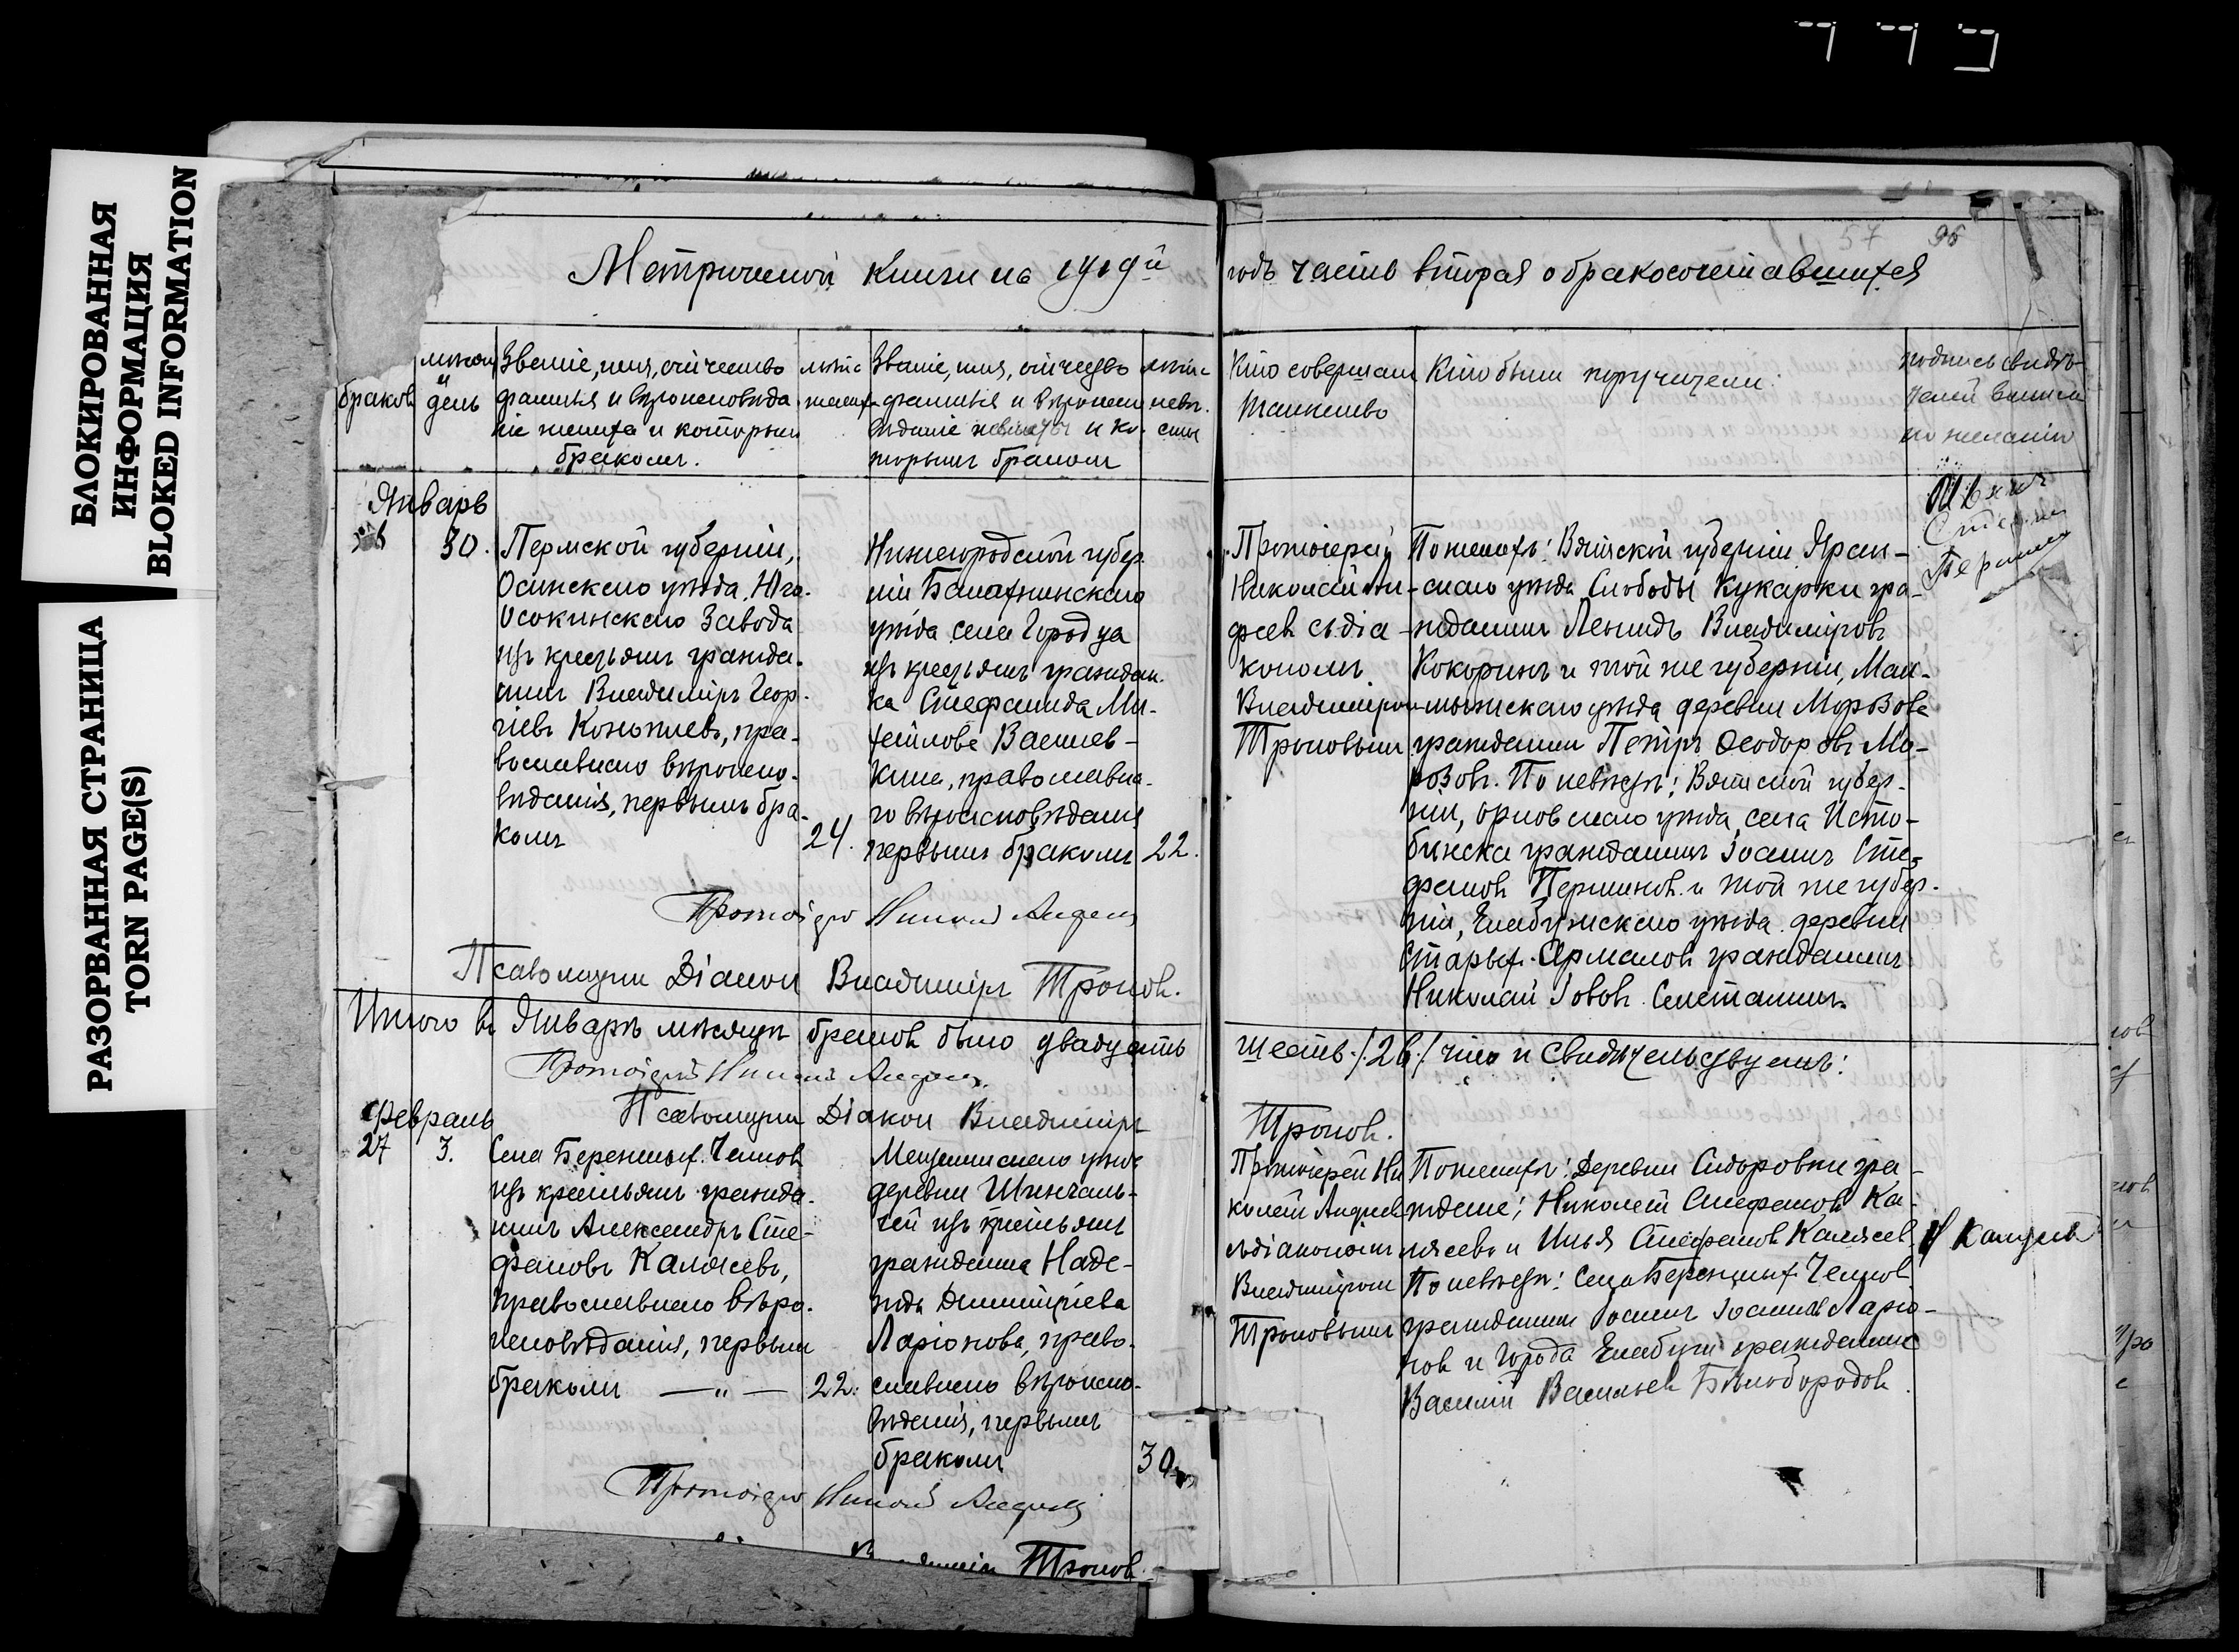 БЛОКИРОВАННАЯ
ИНФОРМАЦИЯ
BLOKED INFORMATION
РАЗОРВАННАЯ СТРАНИЦА
TORN PAGE(S)
57 96
Метрической книги на 1919й
годъ часть вторая о бракосочетавшихся
браковъ
мѣсяцъ
и
день
Званіе, имя, отчество
фамилія и вѣроисповѣда
ніе жениха и которымъ
бракомъ.
лѣта
жених
Званіе, имя, отчество
фамилія и вѣроиспо
вѣданіе невѣсты и ко-
торымъ бракомъ
лѣта
невѣ-
сты
Кто совершалъ
таинство
Кто были поручители:
подпись свидѣ-
телей записи
по желанію
Январь
26
30.
Пермской губерніи,
Осинскаго уѣзда, Юго-
Осокинскаго Завода
изъ крестьянъ гражда-
нинъ Владиміръ Геор-
гіевъ Конопневъ, пра-
вославнаго вѣроиспо-
вѣданія, первымъ бра-
комъ
24.
Нижегородской губер
ніи Балахнинскаго
уѣзда села Городца
изъ крестьянъ граждан-
ка Стефанида Ми-
хайлова Васнев-
кина, православна-
го вѣроисповѣданія
первымъ бракомъ
22.
Протоіерей
Николай Ан-
дреевъ съ діа-
кономъ
Владиміромъ
Троповымъ
По женихѣ: Вятской губерніи Яран-
скаго уѣзда Слободы Кукарки гра-
жданинъ Леонидъ Владиміровъ
Кокоринъ и той же губерніи, Мал-
мыжскаго уѣзда деревни Морозова
гражданинъ Петръ Ѳеодоровъ Мо-
розовъ. По невѣстѣ: Вятской губер-
ніи, орловскаго уѣзда, села Исто-
бинска гражданинъ Іоаннъ Сте-
фановъ Перминовъ и той же губер-
ніи, Елабужскаго уѣзда деревни
Старыхъ Армаловъ гражданинъ
Николай Іововъ Сметанинъ.
Протоіерей Николай Андреевъ
Псаломщикъ Діаконъ Владиміръ Троповъ.
Итого въ Январѣ мѣсяцѣ браковъ было двадцать
шесть /26/ что и свидѣтельствуемъ:
Протоіерей Николай Андреевъ.
Псаломщикъ Діаконъ Владиміръ
Троповъ.
Февраль
27
3.
Села Бережныхъ Челновъ
изъ крестьянъ гражда-
нинъ Александръ Сте-
фановъ Калясевъ,
православнаго вѣро-
исповѣданія, первымъ
бракомъ — " —
22.
Мензелинскаго уѣзда
деревни Шинчаль-
чей изъ крестьянъ
гражданка Наде-
жда Димитріева
Ларіонова, право-
славнаго вѣроиспо-
вѣданія, первымъ
бракомъ
30
Протоіерей Ни
колай Андреев
съ діакономъ
Владиміромъ
Троповымъ
По женихѣ: Деревни Сидоровки гра-
ждане; Николай Стефановъ Ка-
лясевъ и Илья Стефановъ Калясев.
По невѣстѣ: Села Бережныхъ Челновъ
гражданинъ Іоаннъ Іоанновъ Ларіо-
новъ и города Елабуги гражданинъ
Василій Васильевъ Бѣлобородовъ
Протоіерей Николай Андреевъ
Троповъ.